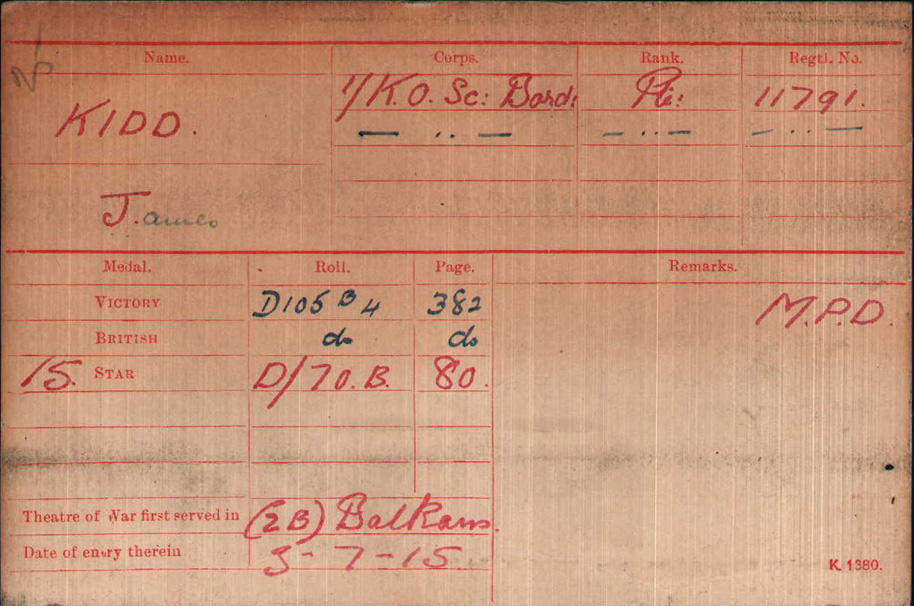 Name. Corps. Rank. Regtl. No.
KIDD. 1/K.O. Sc: Bord: Pte: 11791.
— ·· — — ·· — — ·· —
J.ames
Medal. Roll. Page. Remarks.
VICTORY D105 B 4 382 M.P.D.
BRITISH do do
15. STAR D/70.B. 80.
Theatre of War first served in (2B) Balkans.
Date of entry therein 3-7-15.
K. 1380.